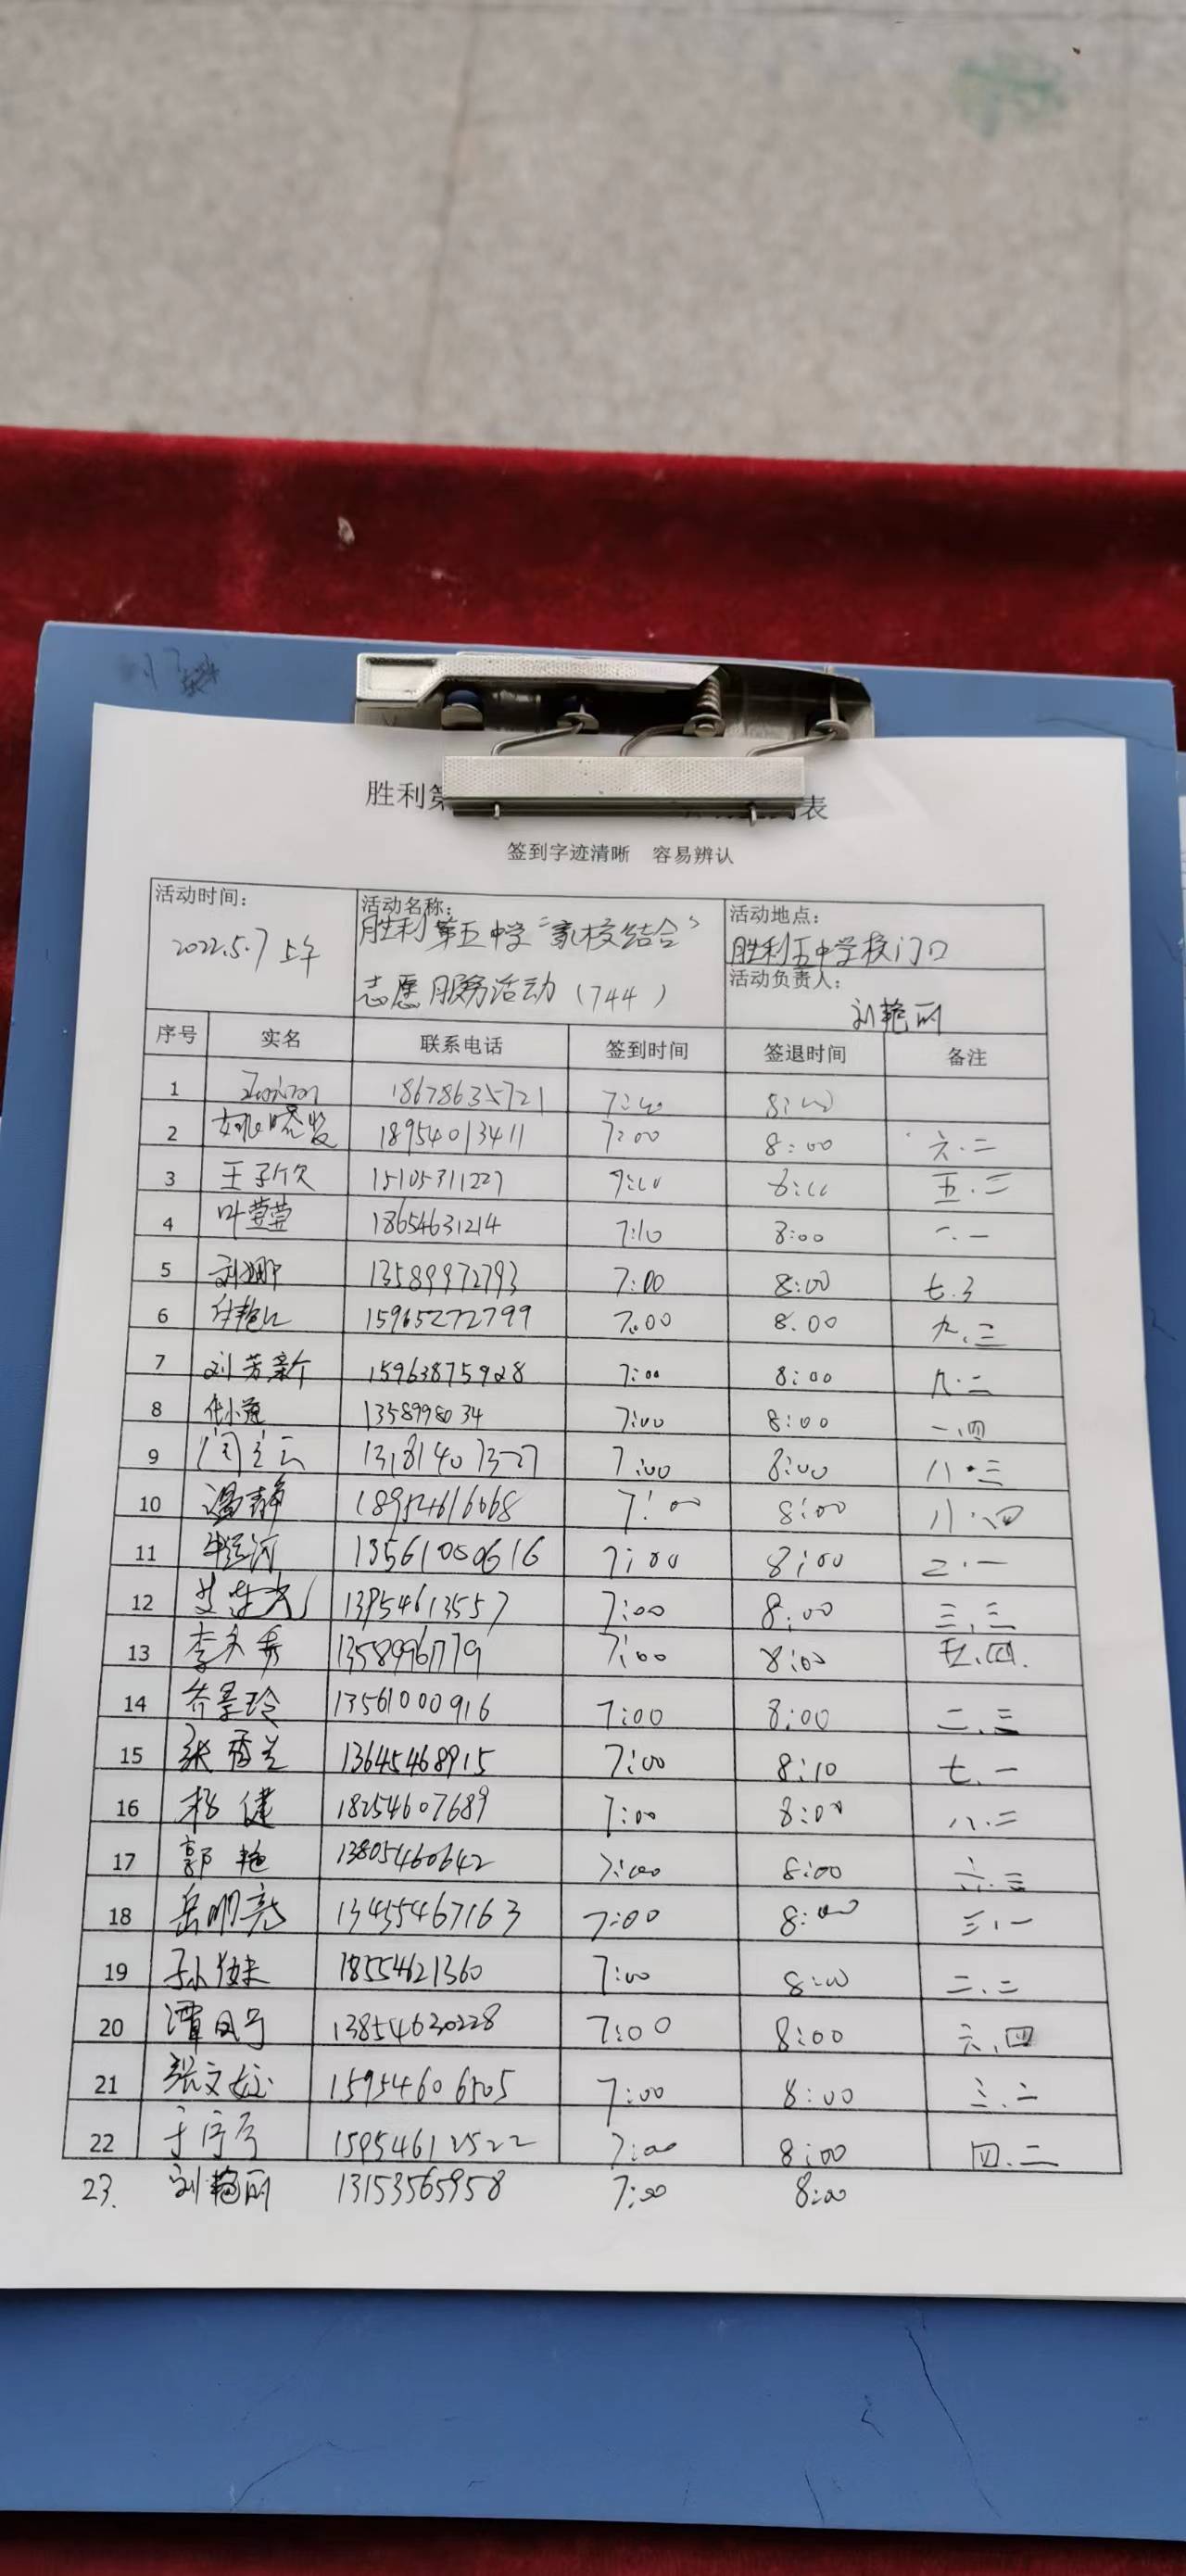 胜利第 表
签到字迹清晰 容易辨认
活动时间: 2022.5.7 上午
活动名称: 胜利第五中学“家校结合”
志愿服务活动(744)
活动地点: 胜利五中学校门口
活动负责人: 刘艳丽
序号 实名 联系电话 签到时间 签退时间 备注
1 18678635721
2 18954013411 7:00 8:00 六.二
3 15105311227 五.二
4 叶萱萱 18654631214 7:10 8:00
5 刘娜 13589972793 7:00 8:00 七.3
6 15965272799 7:00 8.00 九.三
7 刘芳新 15963875928 7:00 8:00 九.二
8 1358998034 7:00 8:00 一.四
9 闫 云 7:00 8:00 八.三
10 温静 18954616068 7:00 8:00 八.四
11 13561050616 7:00 8:00 二.一
12 13954613557 7:00 8:00 三.三
13 7:00 8:00 五.四.
14 乔景玲 13561000916 7:00 8:00 二.三
15 张香兰 13645468915 7:00 8:10 七.一
16 杨健 18254607689 7:00 8:00 八.二
17 郭艳 13805460642 7:00 8:00 六.三
18 岳明亮 13455467163 7:00 8:00 三.一
19 18554621360 7:00 8:00 二.二
20 13854630228 7:00 8:00 六.四
21 张文 15954606505 7:00 8:00 三.二
22 15954612522 7:00 8:00 四.二
23. 刘艳丽 13153565958 7:00 8:00